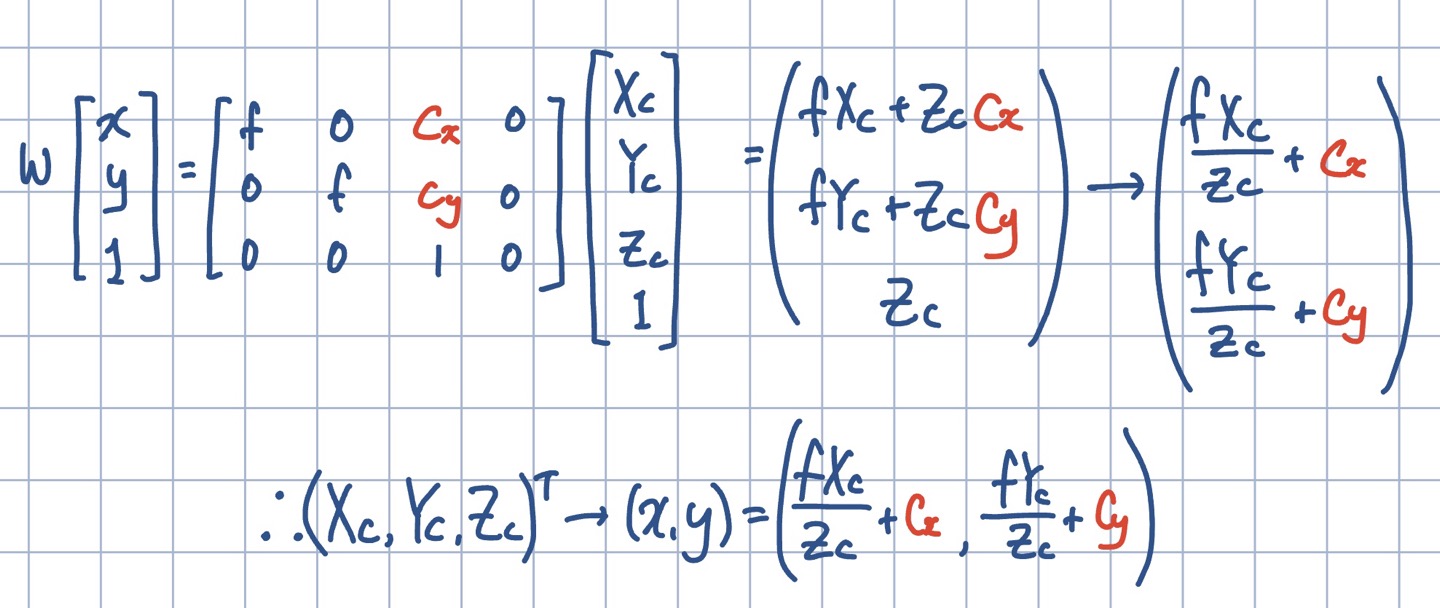 w [x y 1] = [f 0 Cx 0 ; 0 f Cy 0 ; 0 0 1 0] [Xc Yc Zc 1] = (fXc + ZcCx ; fYc + ZcCy ; Zc) → (fXc/Zc + Cx ; fYc/Zc + Cy)
∴ (Xc, Yc, Zc)ᵀ → (x, y) = (fXc/Zc + Cx, fYc/Zc + Cy)